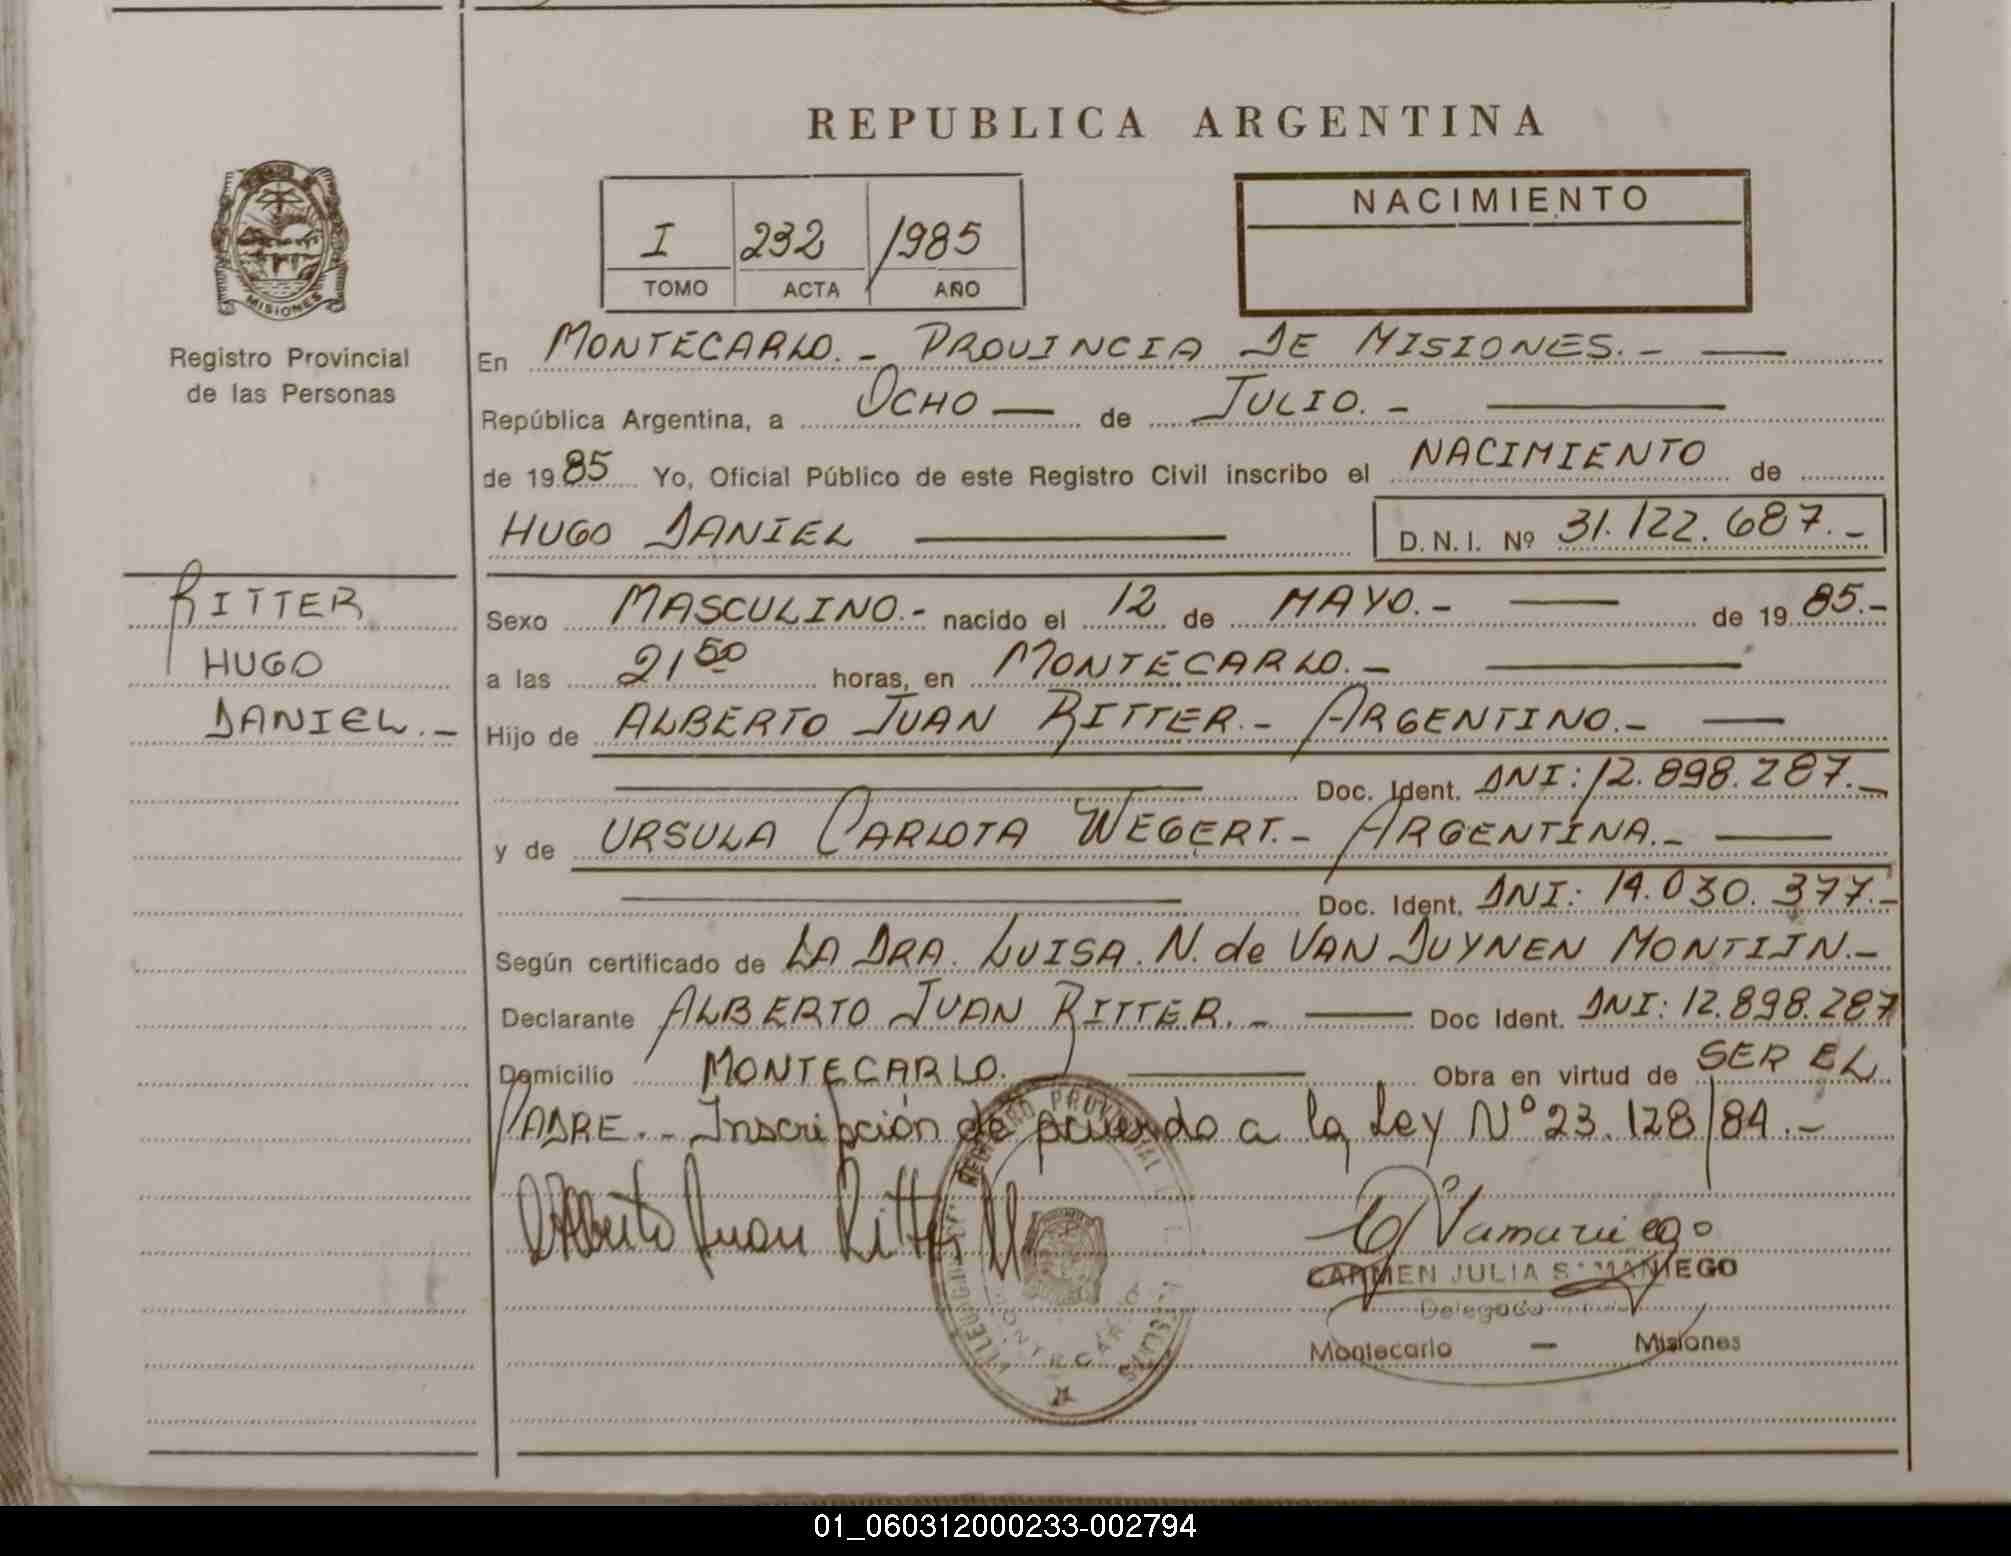 REPUBLICA ARGENTINA
MISIONES
Registro Provincial
de las Personas
I 232 1985
TOMO ACTA AÑO
NACIMIENTO
En MONTECARLO.- PROVINCIA DE MISIONES.-
República Argentina, a OCHO de JULIO.-
de 1985 Yo, Oficial Público de este Registro Civil inscribo el NACIMIENTO de
HUGO DANIEL D.N.I. Nº 31.122.687.-
RITTER
HUGO
DANIEL.-
Sexo MASCULINO.- nacido el 12 de MAYO.- de 1985.-
a las 21 50 horas, en MONTECARLO.-
Hijo de ALBERTO JUAN RITTER.- ARGENTINO.-
Doc. Ident. DNI: 12.898.287.-
y de URSULA CARLOTA WEGERT.- ARGENTINA.-
Doc. Ident. DNI: 14.030.377.-
Según certificado de LA DRA. LUISA. N. de VAN DUYNEN MONTIJN.-
Declarante ALBERTO JUAN RITTER.- Doc Ident. DNI: 12.898.287
Domicilio MONTECARLO. Obra en virtud de SER EL
PADRE.- Inscripción de acuerdo a la Ley Nº 23.128/84.-
Alberto Juan Ritter
REGISTRO PROVINCIAL
MONTECARLO
MISIONES
CARMEN JULIA SAMANIEGO
Delegada
Montecarlo - Misiones
01_060312000233-002794